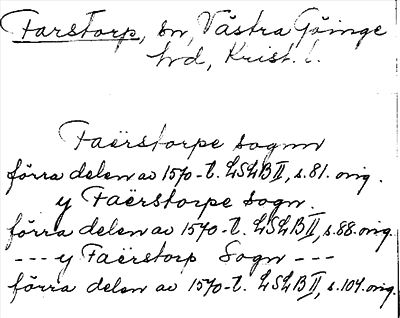 Farstorp, sn, Västra Göinge
hd, Krist. l.
Faërstorpe sognn
förra delen av 1570-t. LSLB II, s. 81. orig.
y Faërstorpe sogn.
förra delen av 1570-t. LSLB II, s. 88. orig.
--- y Faërstorp Sogn ---
förra delen av 1570-t. LSLB II, s. 104. orig.